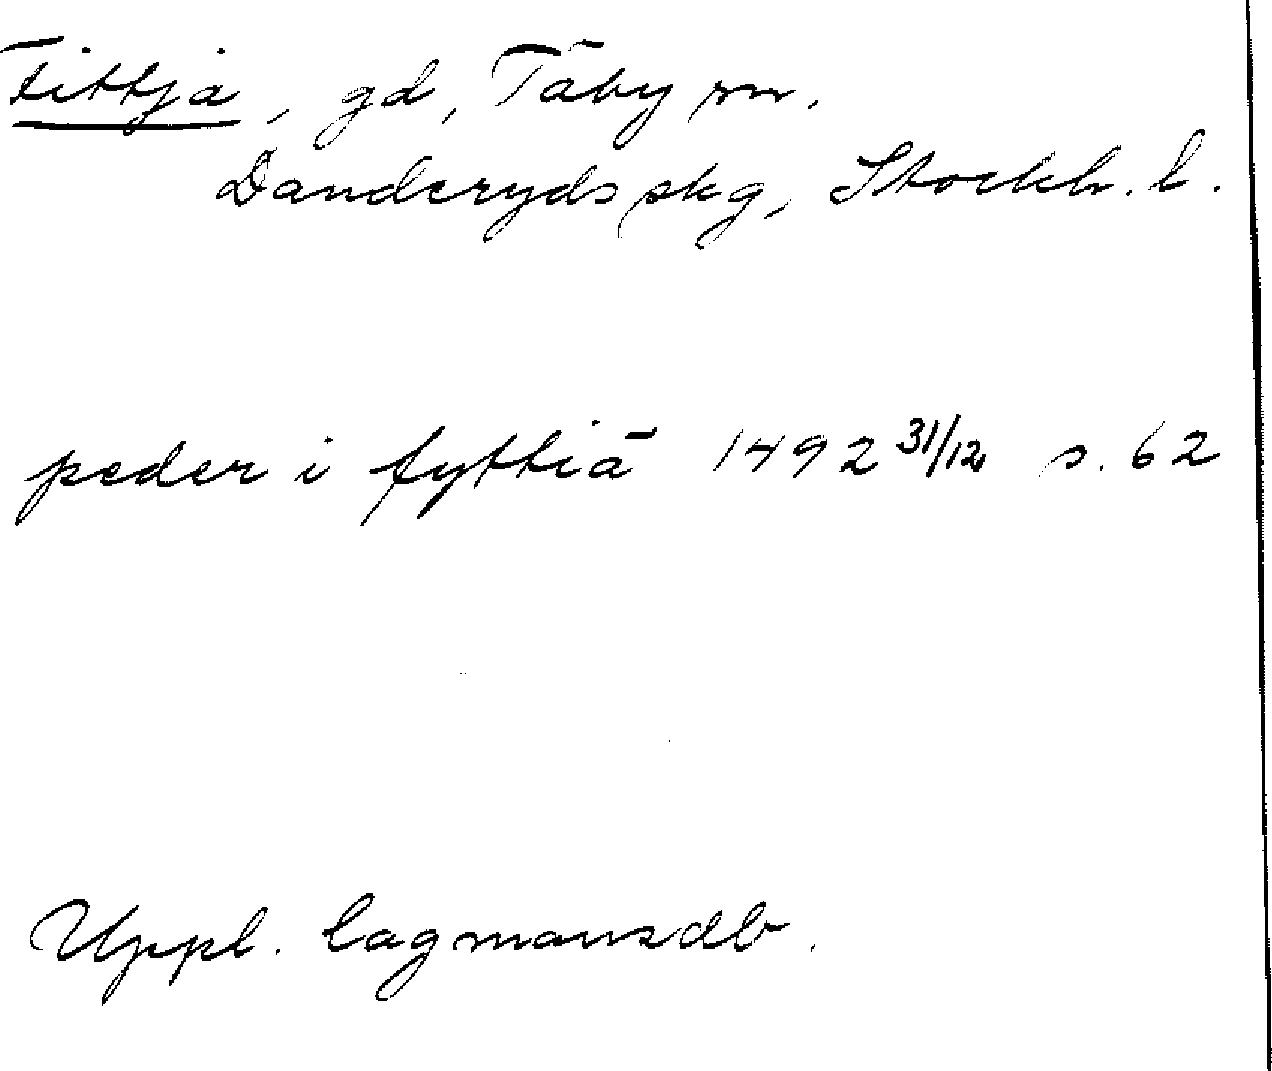 Fittja, gd, Täby sn.
Danderyds skg, Stockh. l.
peder i fyttiä 1492 31/12 s. 62
Uppl. lagmansdb.